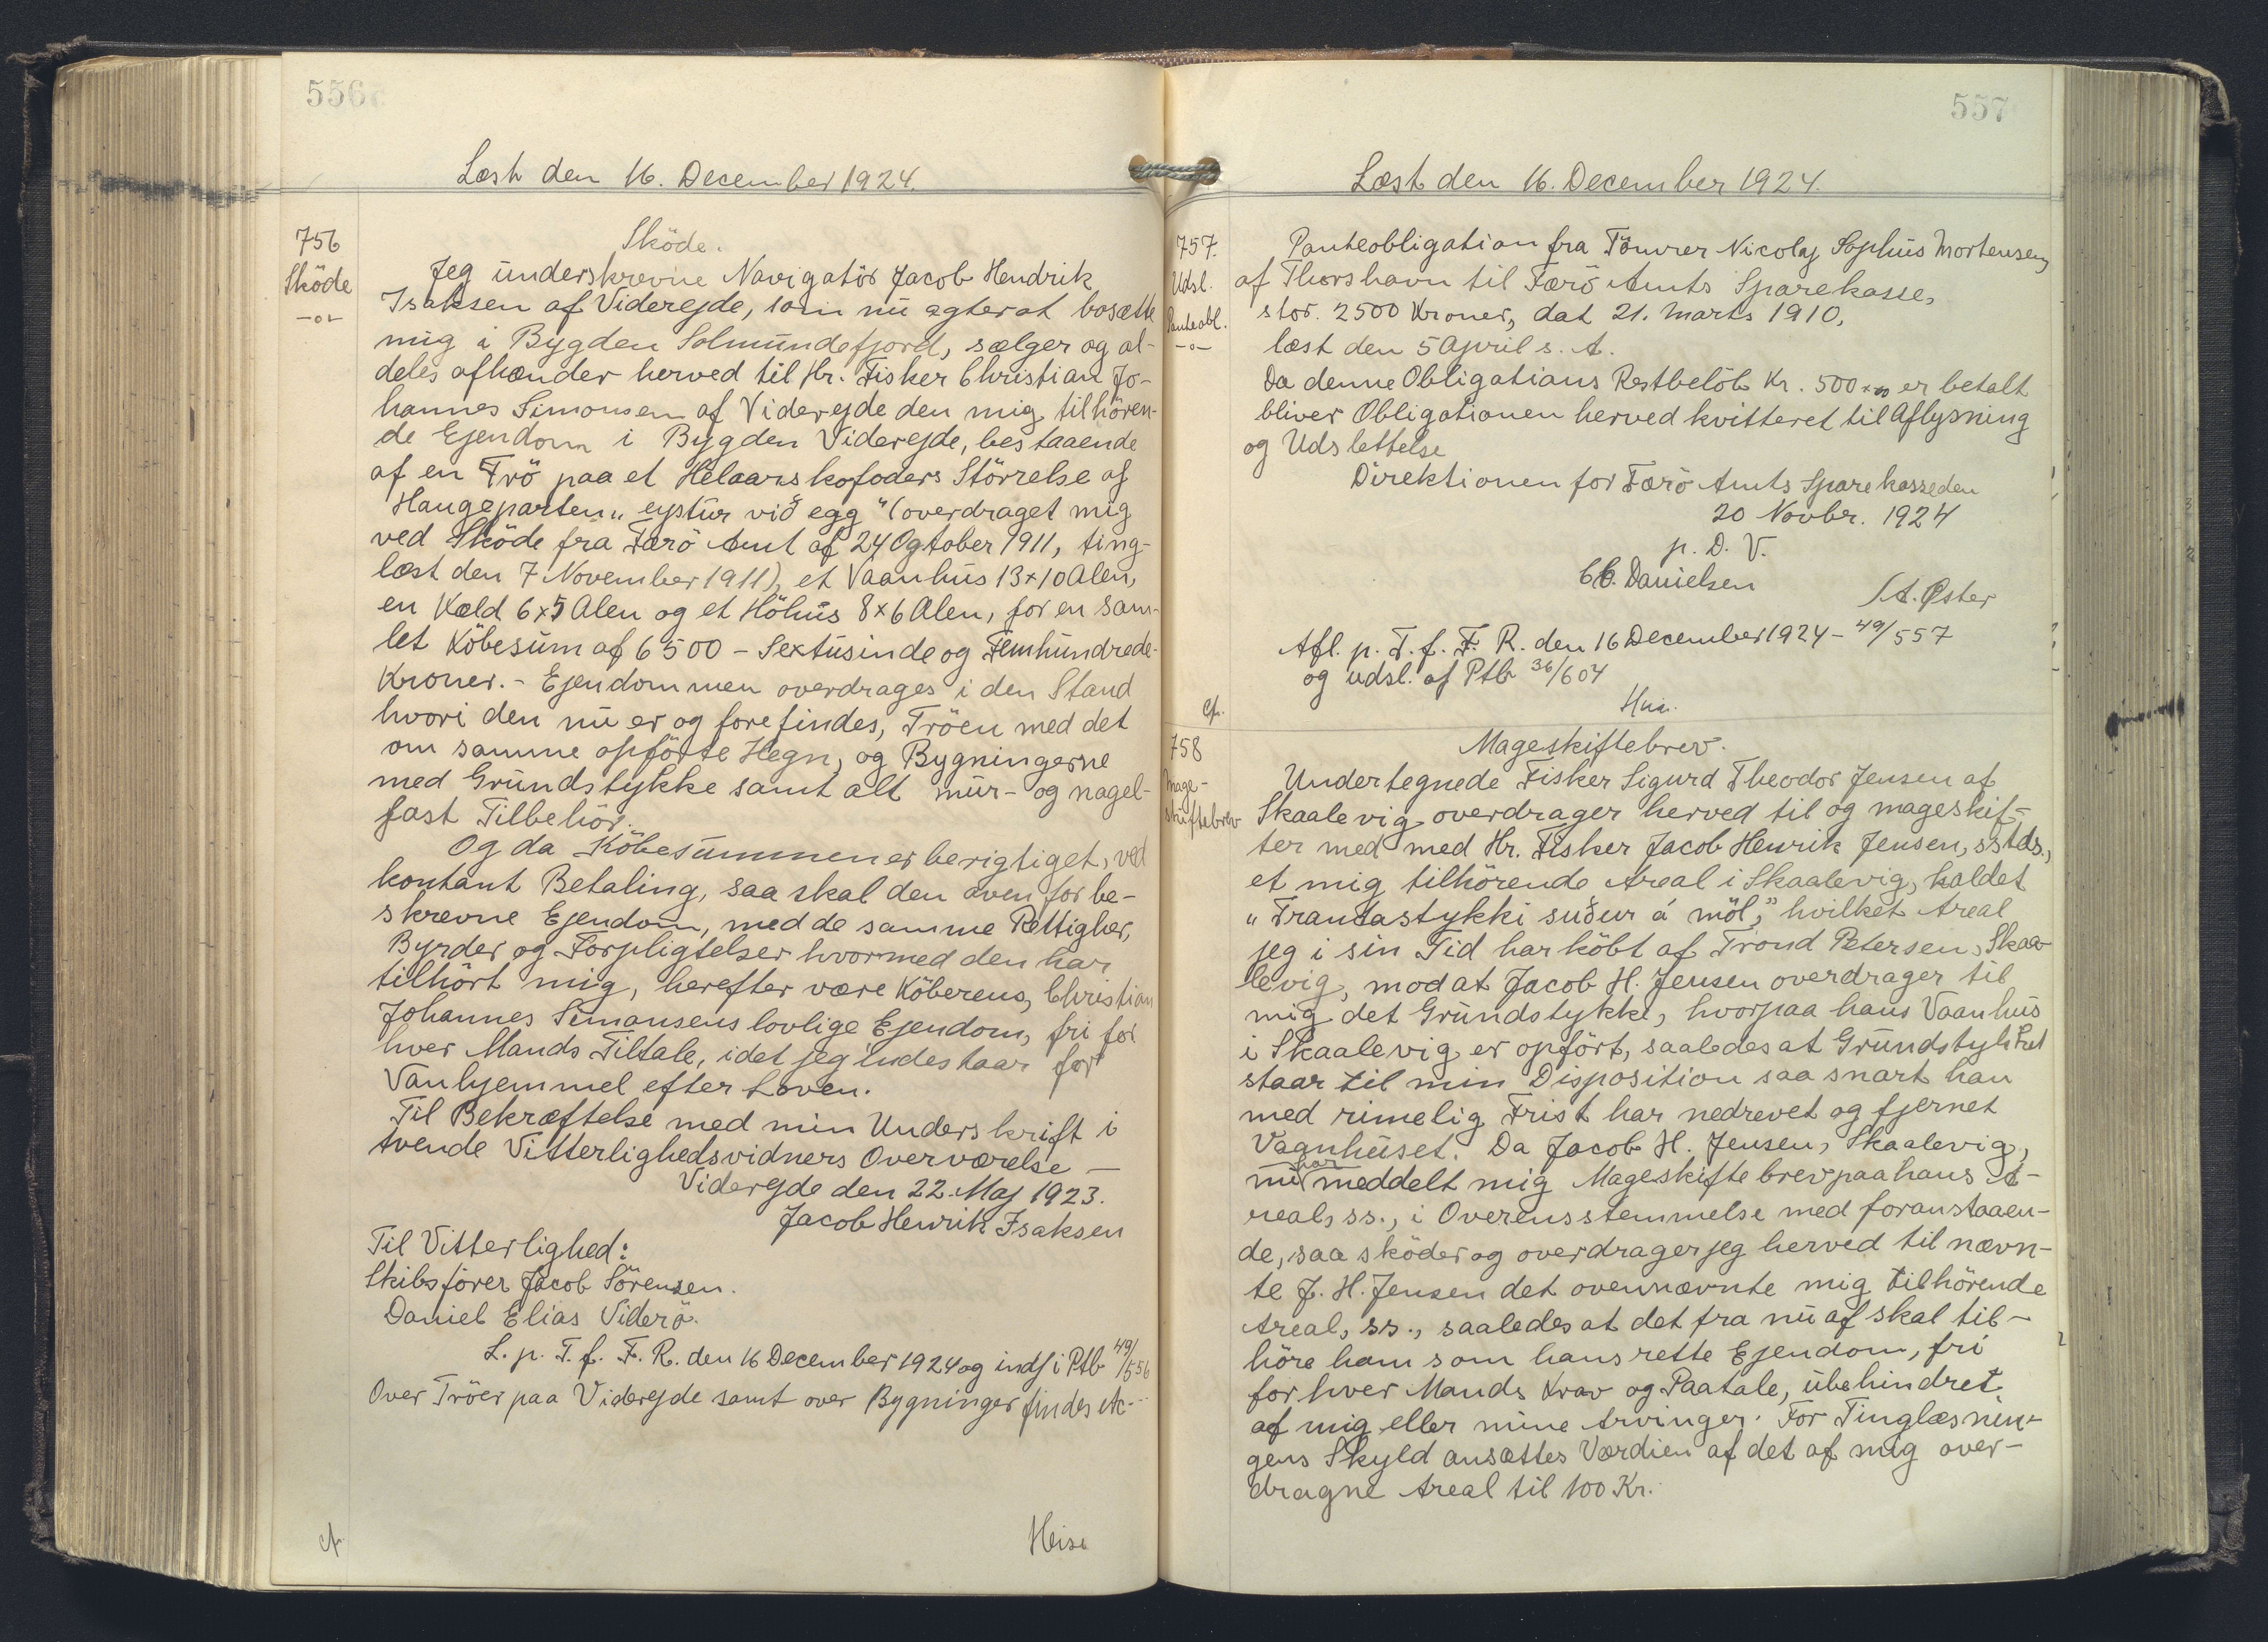 556
Læst den 16. December 1924.
756
Sköde
Sköde.
Jeg underskrevne Navigatör Jacob Hendrik
Isaksen af Viderejde, som nu agter at bosætte
mig i Bygden Solmundefjord, sælger og al-
deles afhænder herved til Hr. Fisker Christian Jo-
hannes Simonsen af Viderejde den mig tilhören-
de Ejendom i Bygden Viderejde, bestaaende
af en Trö paa et Helaarskofoders Störrelse af
Haugeparten „eystur við egg" (overdraget mig
ved Sköde fra Færö Amt af 24 Ogtober 1911, ting-
læst den 7 November 1911), et Vaanhus 13×10 Alen,
en Kæld 6×5 Alen og et Höhus 8×6 Alen, for en sam-
let Köbesum af 6500 – Sextusinde og Femhundrede-
Kroner. – Ejendommen overdrages i den Stand
hvori den nu er og forefindes, Tröen med det
om samme opförte Hegn, og Bygningerne
med Grundstykke samt alt mur- og nagel-
fast Tilbehör.
Og da Köbesummen er berigtiget, ved
kontant Betaling, saa skal den oven for be-
skrevne Ejendom, med de samme Rettigher,
Byrder og Forpligtelser hvormed den har
tilhört mig, herefter være Köberens, Christian
Johannes Simonsens lovlige Ejendom, fri for
hver Mands Tiltale, idet jeg indestaar for
Vanhjemmel efter Loven.
Til Bekræftelse med min Underskrift i
tvende Vitterlighedsvidners Overværelse –
Viderejde den 22. Maj 1923.
Jacob Henrik Isaksen
Til Vitterlighed:
Skibsförer Jacob Sörensen.
Daniel Elias Viderö.
L. p. T. f. F. R. den 16 December 1924 og indf i Ptb 49/556
Over Tröer paa Viderejde samt over Bygninger findes etc--
cf.
557
Læst den 16. December 1924.
757.
Udsl.
Panteobl.
Panteobligation fra Tömrer Nicolaj Sophus Mortensen
af Thorshavn til Færö Amts Sparekasse,
stor. 2500 Kroner, dat 21. Marts 1910,
læst den 5 April s. A.
Da denne Obligations Restbelöb Kr. 500 er betalt
bliver Obligationen herved kvitteret til Aflysning
og Udslettelse
Direktionen for Færö Amts Sparekasse den
20 Novbr. 1924
p. D. V.
C. Danielsen
/A. Øster
Afl. p. T. f. F. R. den 16 December 1924 – 49/557
og udsl. af Ptb 36/604
cf.
758
Mage-
skiftebrev
Mageskiftebrev.
Undertegnede Fisker Sigurd Theodor Jensen af
Skaalevig overdrager herved til og mageskif-
ter med med Hr. Fisker Jacob Henrik Jensen, sstds.,
et mig tilhörende Areal i Skaalevig, kaldet
„Trandastykki suður á möl," hvilket Areal
jeg i sin Tid har köbt af Trond Petersen, Skaa-
levig, mod at Jacob H. Jensen overdrager til
mig det Grundstykke, hvorpaa hans Vaanhus
i Skaalevig er opfört, saaledes at Grundstykket
staar til min Disposition saa snart han
med rimelig Frist har nedrevet og fjernet
Vagnhuset. Da Jacob H. Jensen, Skaalevig,
nu har meddelt mig Mageskiftebrev paa hans A-
real, ss., i Overensstemmelse med foranstaaen-
de, saa sköder og overdrager jeg herved til nævn-
te J. H. Jensen det ovennævnte mig tilhörende
Areal, ss., saaledes at det fra nu af skal til-
höre ham som hans rette Ejendom, fri
for hver Mands Krav og Paatale, ubehindret
af mig eller mine Arvinger. For Tinglæsnin-
gens Skyld ansættes Værdien af det af mig over-
dragne Areal til 100 Kr.